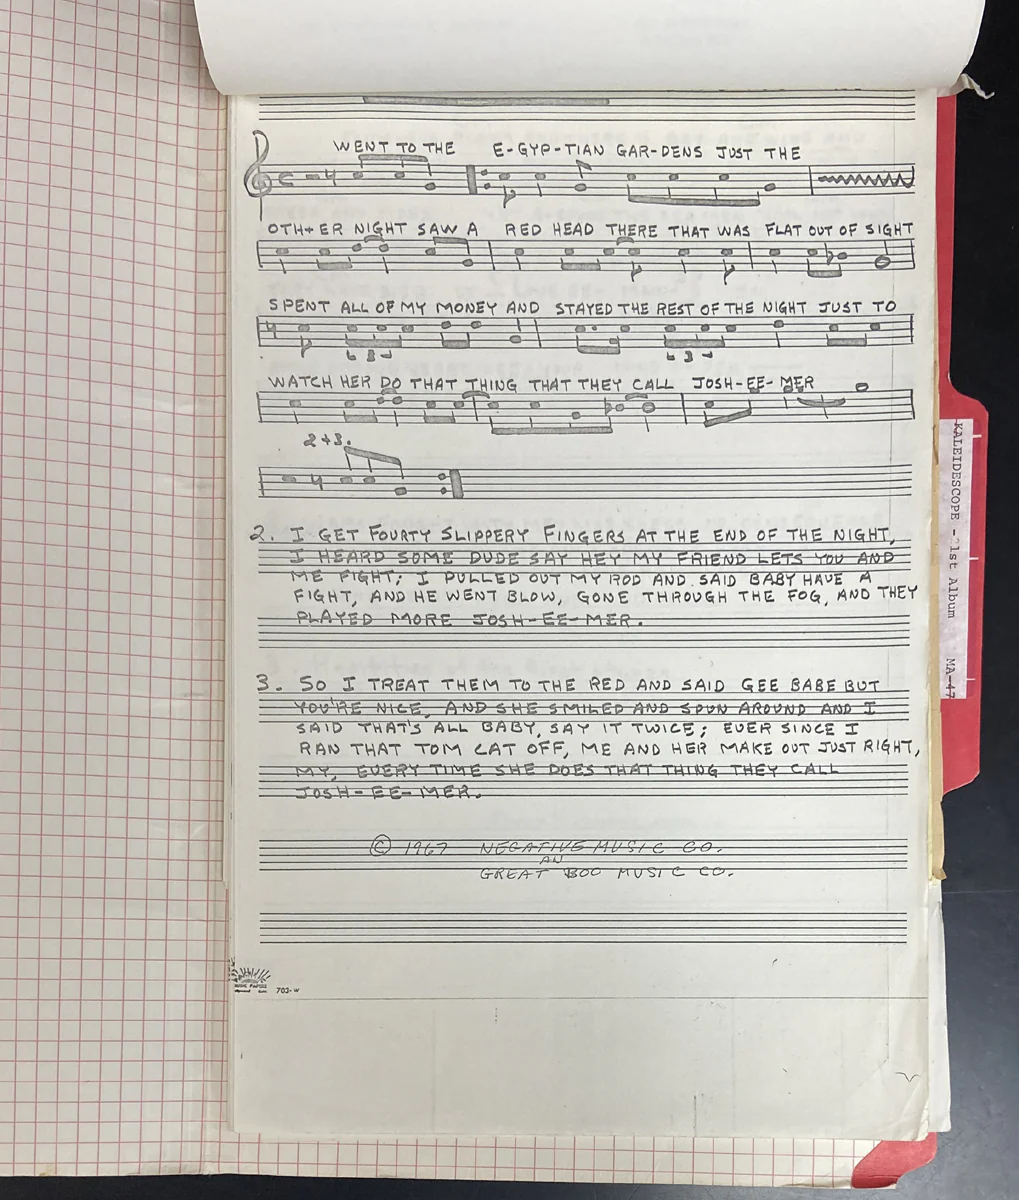 WENT TO THE E-GYP-TIAN GAR-DENS JUST THE
OTH-ER NIGHT SAW A RED HEAD THERE THAT WAS FLAT OUT OF SIGHT
SPENT ALL OF MY MONEY AND STAYED THE REST OF THE NIGHT JUST TO
3 3
WATCH HER DO THAT THING THAT THEY CALL JOSH-EE-MER
2+3.
2. I GET FOURTY SLIPPERY FINGERS AT THE END OF THE NIGHT,
I HEARD SOME DUDE SAY HEY MY FRIEND LETS YOU AND
ME FIGHT; I PULLED OUT MY ROD AND SAID BABY HAVE A
FIGHT, AND HE WENT BLOW, GONE THROUGH THE FOG, AND THEY
PLAYED MORE JOSH-EE-MER.
3. SO I TREAT THEM TO THE RED AND SAID GEE BABE BUT
YOU'RE NICE, AND SHE SMILED AND SPUN AROUND AND I
SAID THAT'S ALL BABY, SAY IT TWICE; EVER SINCE I
RAN THAT TOM CAT OFF, ME AND HER MAKE OUT JUST RIGHT,
MY, EVERY TIME SHE DOES THAT THING THEY CALL
JOSH-EE-MER.
© 1967 NEGATIVE MUSIC CO.
AN
GREAT BOO MUSIC CO.
MUSIC PAPERS
702-W
KALEIDESCOPE - 21st Album MA-47